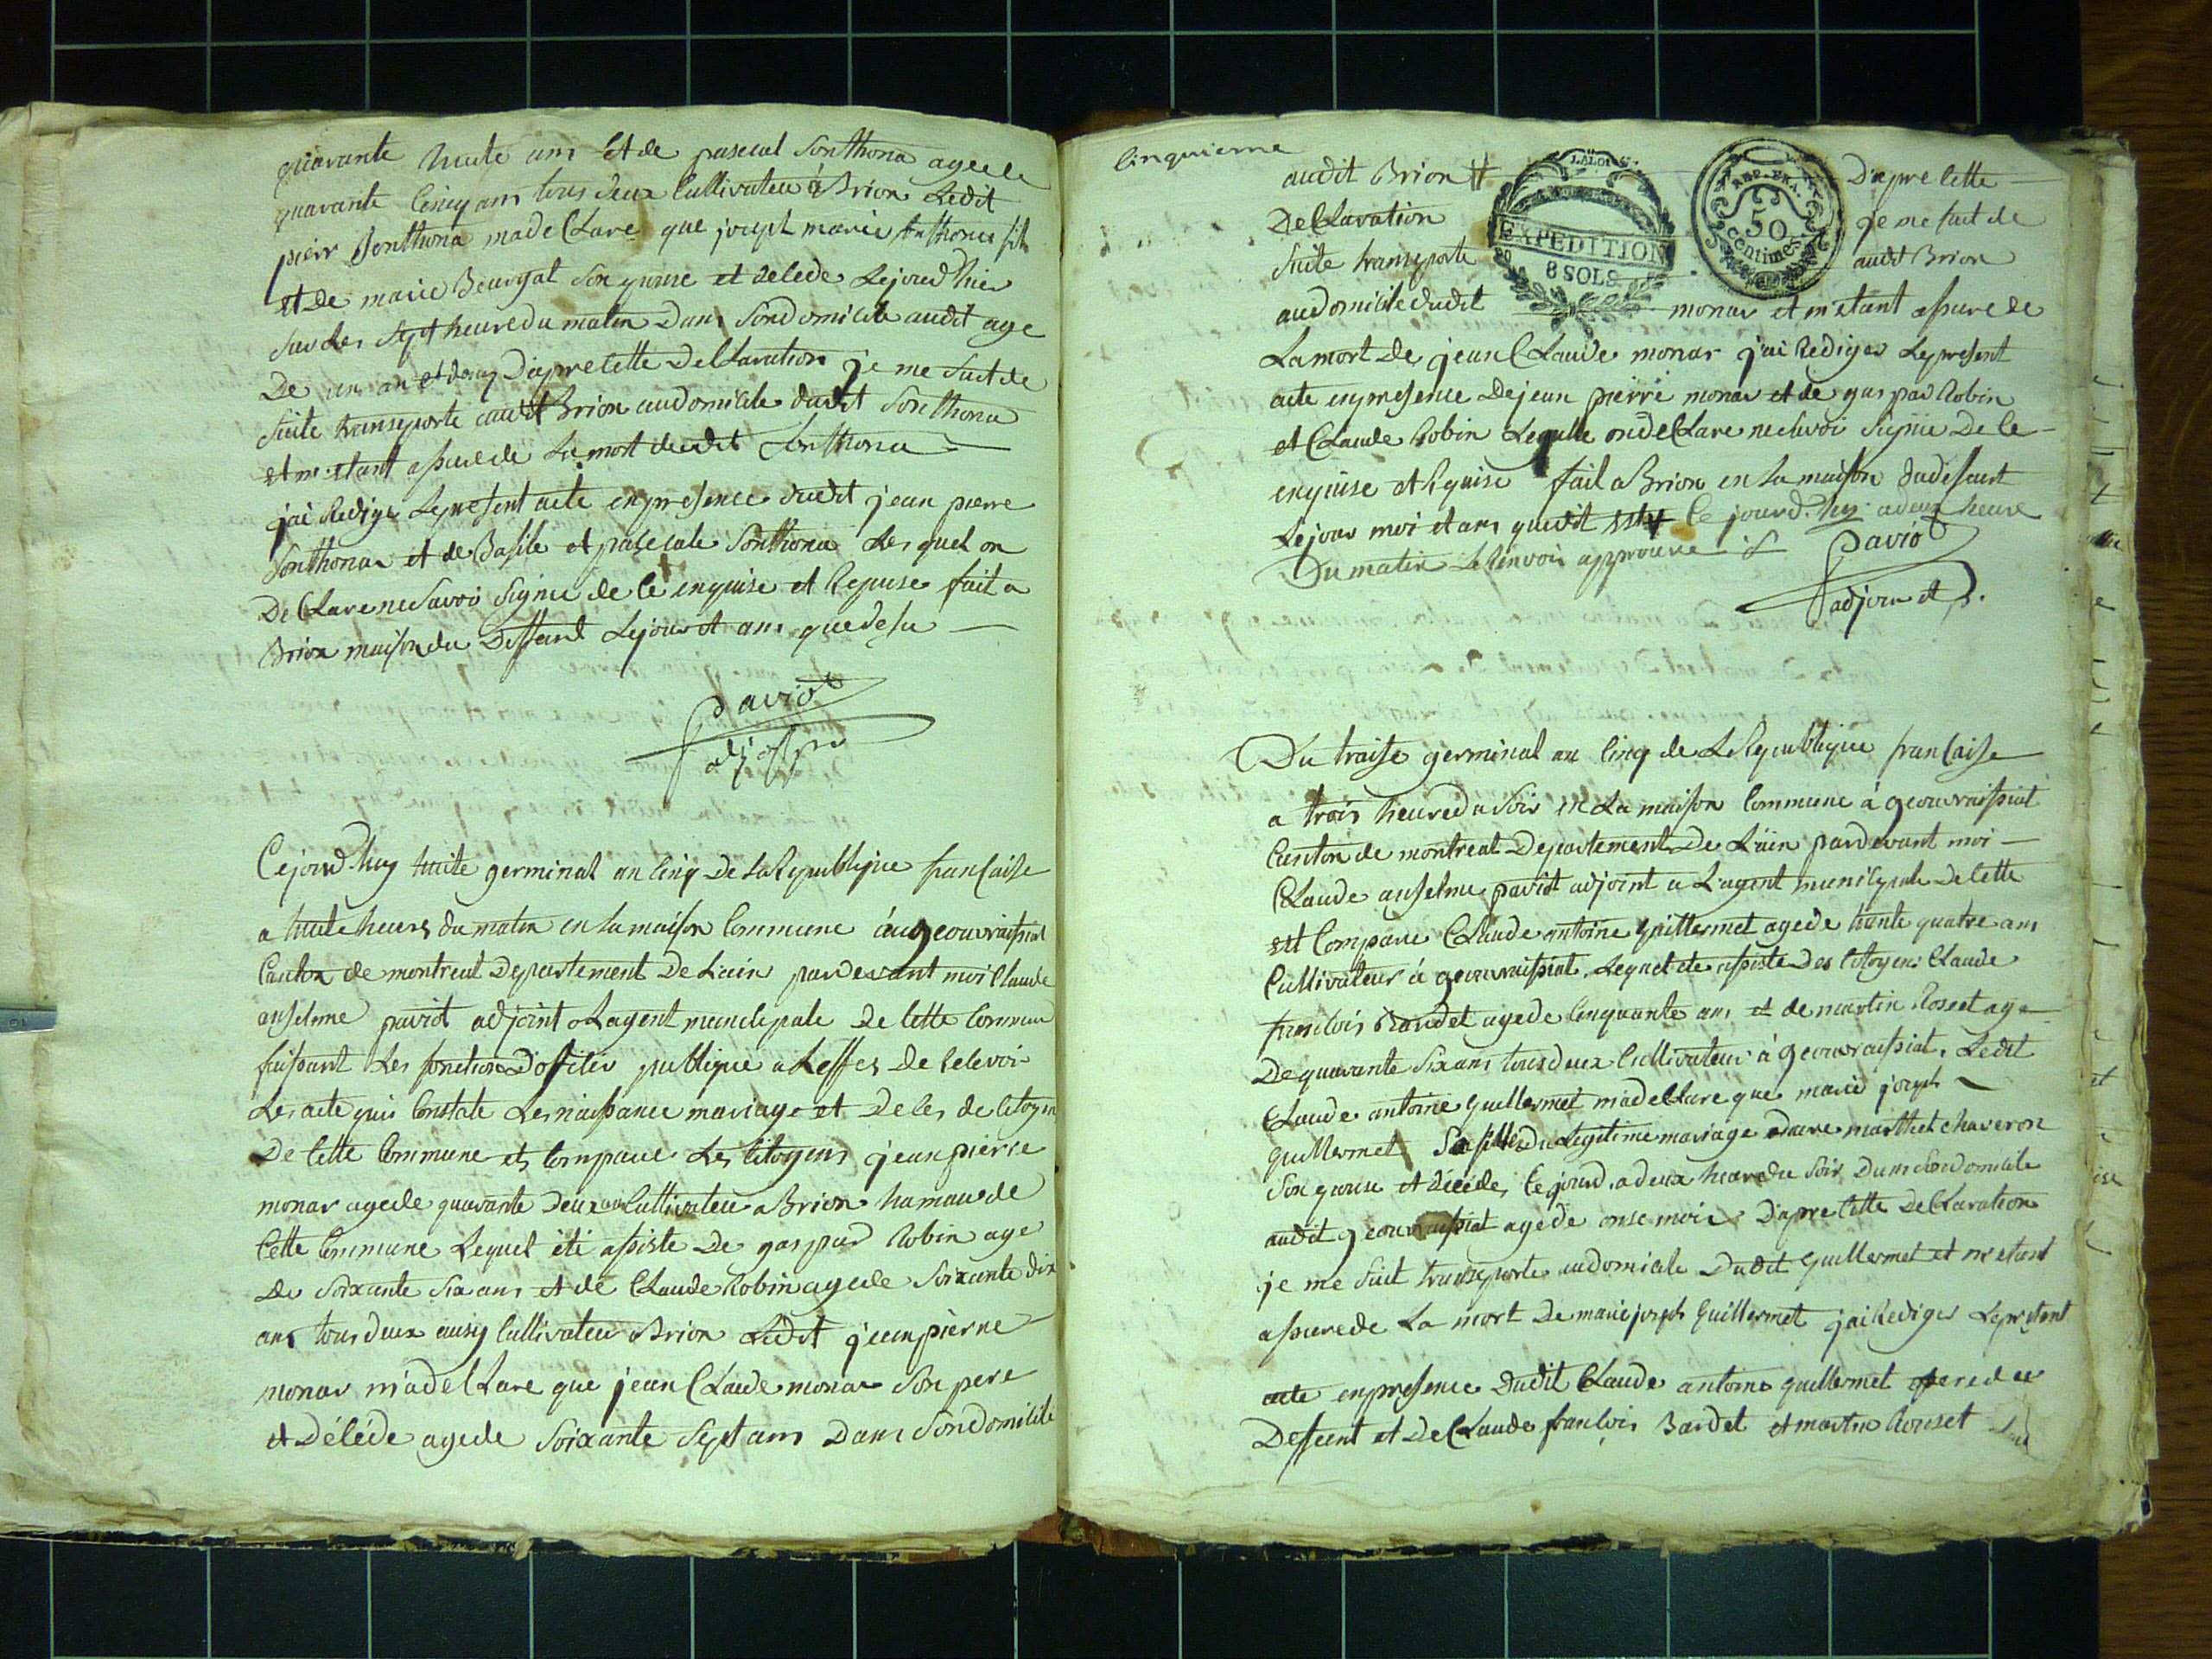 quarante huite ans et de pascal Sonthona agede
quarante Cinq ans tous deux Cultivateu à Brion Ledit
pierr Sonthona ma deClaré que joseph marie Sonthona fils
et de marie Bourgat Son epouse et decede Lejourd'hier
Sur les Sept heure du matin Dans Sondomicile audit age
De un an et demy D'apre Cette DeClaration je me Suit de
Suite transporte audit Brion audomicile dudit Sonthona
et m'étant assure de La mort dudit Sonthona
jai Redige Lepresent acte en presence dudit jean pierre
Sonthona et de Basile et pascale Sonthona Lesquel on
DeClare ne Savoi Signie de Ce enquise et Requise fait a
Brion maison du Deffunt Lejour et ans que desu
Paviot
adjoint
Cejourd'huy huite germinal an Cinq De La Republique francaise
a huite heurs du matin en La maison Commune à geouvraissiat
Canton de montreal Departement De Lain pardevant moi Claude
anselme paviot adjoint a Lagent municipale De Cette Commun
faissant Les fonction D'officier publique a Leffes de Recevoir
Les acte qui Constate Les naissance mariage et Deces de Citoyen
De Cette Commune est Comparue Les Citoyens jean pierre
monar agede quarante Deux ans Cultivateu a Brion hamau de
Cette Commune Lequel été assiste De gaspard Robin age
De Soixante Six ans et de Claude Robin agede Soixante dix
ans tous deux ausy Cultivateu a Brion Ledit jean pierre
monar m'a deClare que jean Claude monar Son pere
et Décéde agede Soixante Sept ans Dans Sondomicile
Cinquieme
audit Brion # D'apre Cette
DeClaration je me Suit de
Suite transporte audit Brion
audomicile dudit monar et m'étant assure de
La mort de jean Claude monar j'ai Rediger Lepresent
acte en presence De jean pierre monar et de gaspar Robin
et Claude Robin Lequelle on deClare ne Savoi Signie De Ce
enquise et Requise fait a Brion en La maison du defunt
Lejour moi et ans que dit # Ce jourd'huy a deux heure
Du matin Le Renvoi approuve
Paviot
adjoint
LA LOI
EXPEDITION
8 SOLS
REP. FRA.
50
centimes
Du traise germinal an Cinq de La Republique francaise
a trois heure du Soir en La maison Commune à geouvraissiat
Canton de montreal Departement De Lain pardevant moi
Claude anselme paviot adjoint a L'agent municipale De Cette
est Comparue Claude antoine guillermet agede trente quatre ans
Cultivateur à geouvraissiat Lequel ete assiste Des Citoyens Claude
francois Bardet agede Cinquante ans et de martin Rosset age
De quarante Six ans tous deux Cultivateur à geouvraissiat. Ledit
Claude antoine guillermet m'a deClare que marie joseph
guillermet Sa fille Du Legitime mariage daure marthet chaveron
Son epouse et décéde Cejourd. a deux heure du Soir Dans Sondomicile
audit geouvraissiat agede onse mois D'apre Cette DeClaration
je me Suit transporte audomicile Dudit guillermet et m'étant
assure de La mort De marie joseph guillermet j'ai Rediger Lepresent
acte en presence Dudit Claude antoine guillermet
Defunt et De Claude francois Bardet et martin Rouset